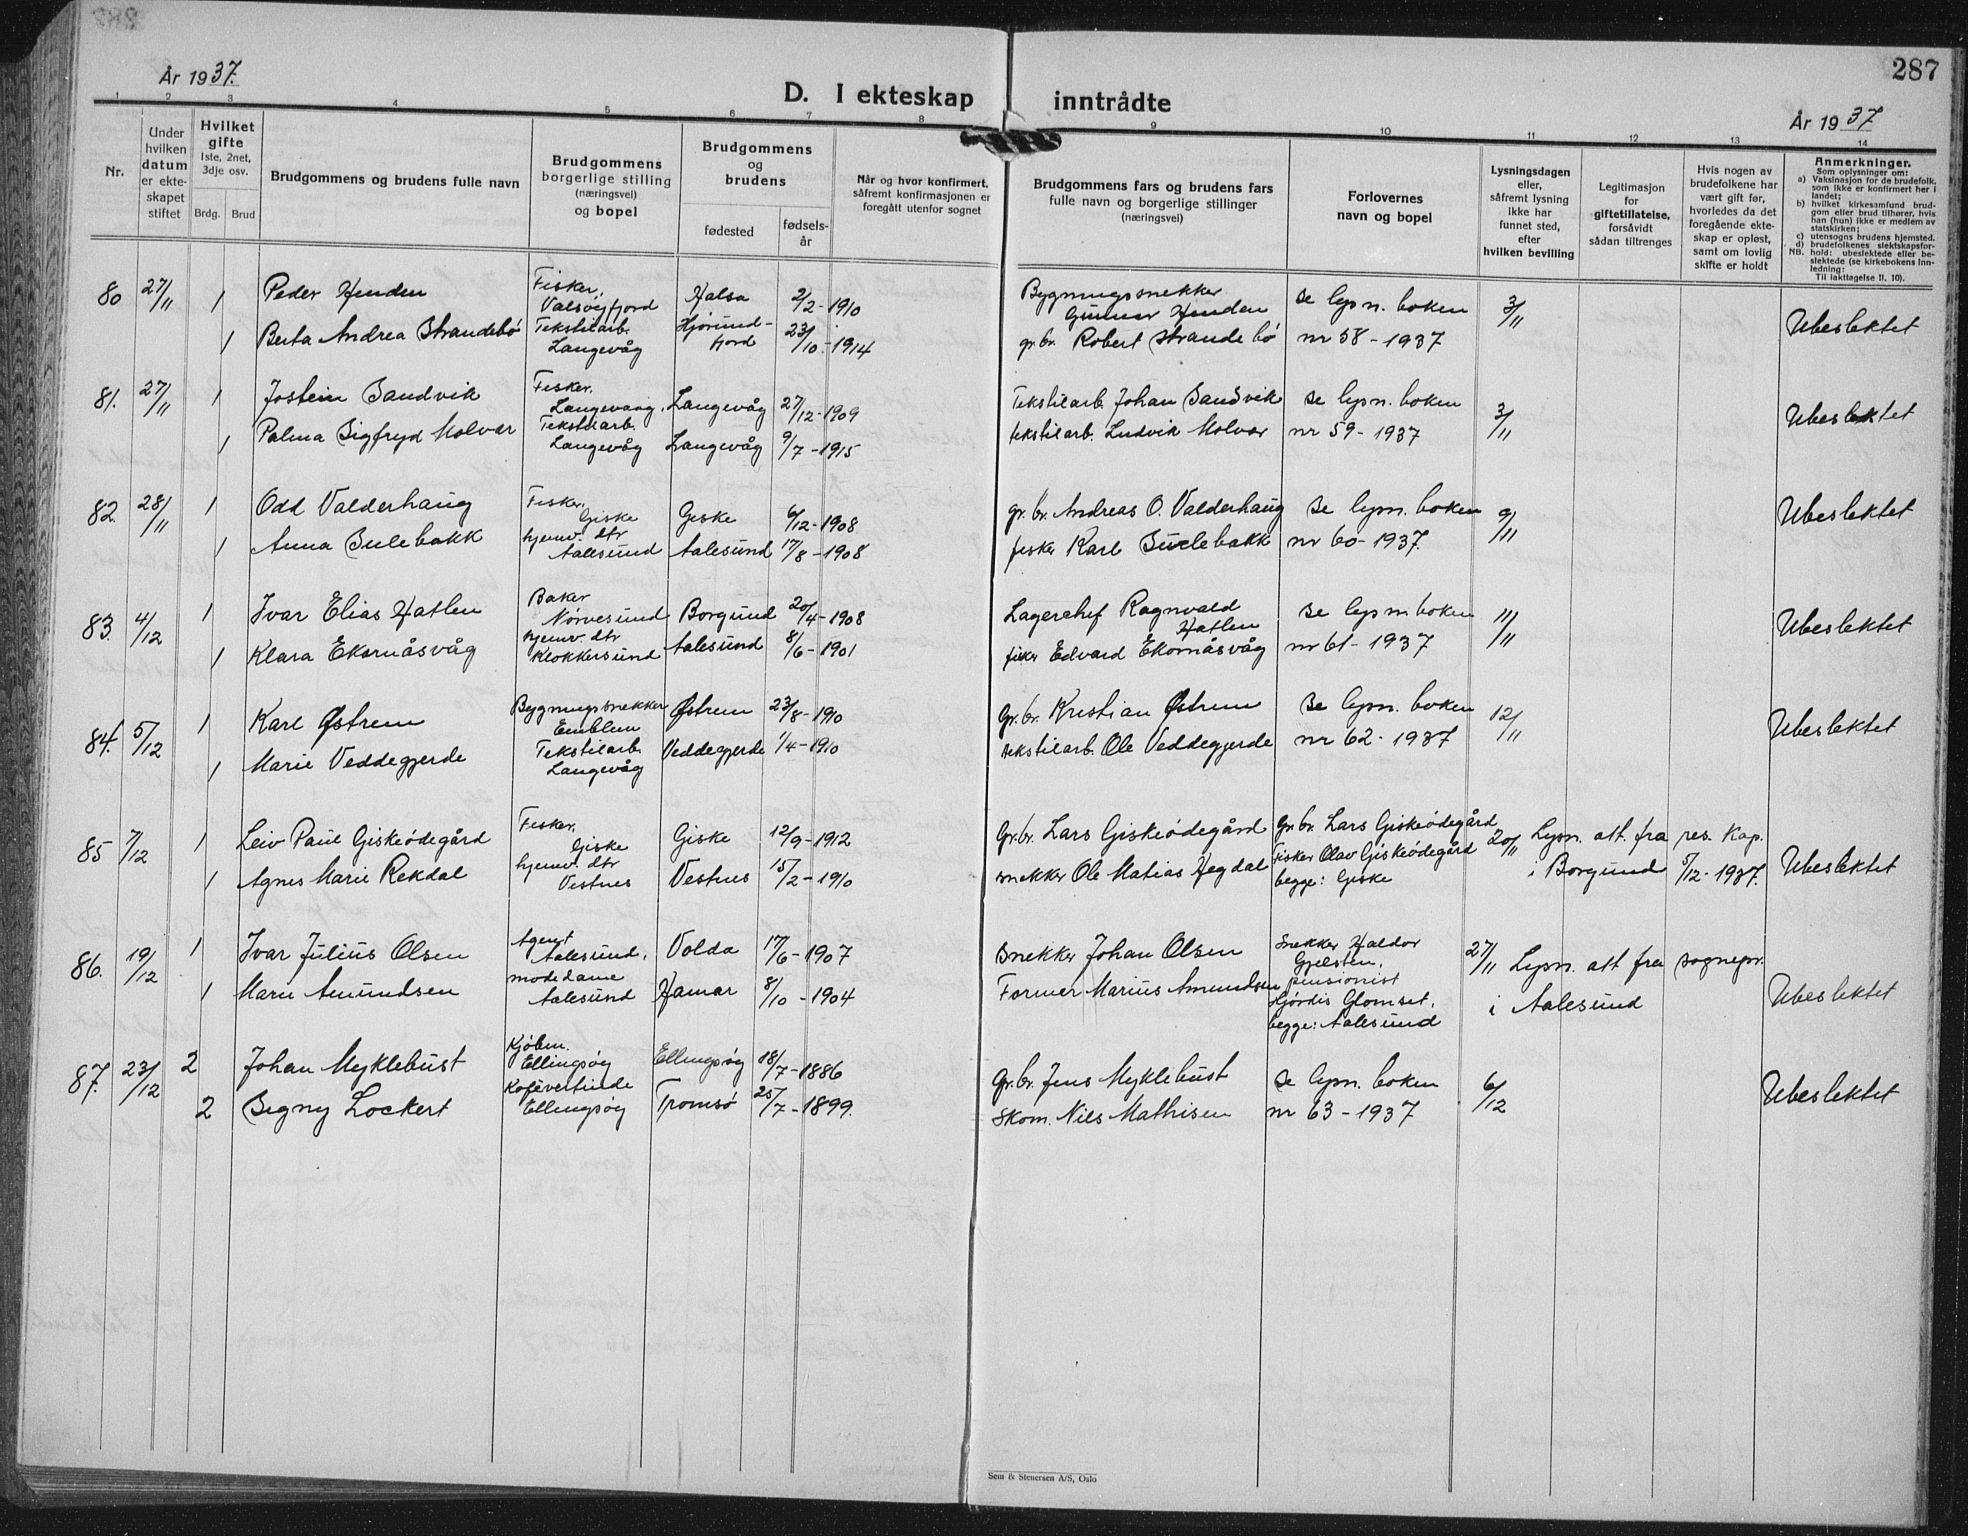 År 1937.
D. I ekteskap inntrådte
287
År 1937
1 2 3 4 5 6 7 8 9 10 11 12 13 14
Nr.
Under hvilken datum er ekteskapet stiftet
Hvilket gifte 1ste, 2net, 3dje osv.
Brdg. Brud
Brudgommens og brudens fulle navn
Brudgommens borgerlige stilling (næringsvei) og bopel
Brudgommens og brudens
fødested
fødselsår
Når og hvor konfirmert, såfremt konfirmasjonen er foregått utenfor sognet
Brudgommens fars og brudens fars fulle navn og borgerlige stillinger (næringsvei)
Forlovernes navn og bopel
Lysningsdagen eller, såfremt lysning ikke har funnet sted, efter hvilken bevilling
Legitimasjon for giftetillatelse, forsåvidt sådan tiltrenges
Hvis nogen av brudefolkene har vært gift før, hvorledes da det foregående ekteskap er opløst, samt om lovlig skifte er holdt
Anmerkninger.
Som oplysninger om:
a) Vaksinasjon for de brudefolk, som ikke er konfirmert her i landet;
b) hvilket kirkesamfund brudgom eller brud tilhører, hvis han (hun) ikke er medlem av statskirken;
c) utensogns brudens hjemsted.
d) brudefolkenes slektskapsforhold: ubeslektede eller beslektede (se kirkebokens Innledning:
NB. Til iakttagelse II. 10).
80 27/11 1 Peder Henden Fisker, Valsøyfjord Halsa 2/2-1910 Bygningssnekker Gunnar Henden se lysn. boken 3/11
1 Berta Andrea Strandebø Tekstilarb. Langevåg Hjørundfjord 23/10-1914 gr.br. Robert Strandebø nr 58-1937 Ubeslektet
81. 27/11 1 Jostein Sandvik Fisker, Langevaag, Langevåg 27/12-1909 Tekstilarb. Johan Sandvik se lysn. boken 3/11
1 Palma Sigfryd Molvær Tekstilarb. Langevåg Langevåg 9/7-1915 tekstilarb. Ludvik Molvær nr 59-1937 Ubeslektet
82. 28/11 1 Odd Valderhaug Fisker, Giske Giske 6/12-1908 gr.br. Andreas O. Valderhaug se lysn. boken 9/11
1 Anna Sulebakk hjemv. dtr Aalesund Aalesund 17/8-1908 fisker Karl Sulebakk nr 60-1937. Ubeslektet
83. 4/12 1 Ivar Elias Hatlen Baker Nørvesund Borgund 20/4-1908 Lagerchef Ragnvald Hatlen se lysn. boken 11/11
1 Klara Ekornåsvåg hjemv. dtr Klokkersund Aalesund 8/6-1901 fisker Edvard Ekornåsvåg nr 61-1937 Ubeslektet
84. 5/12 1 Karl Østrem Bygningssnekker Emblem Østrem 23/8-1910 Gr.br. Kristian Østrem se lysn. boken 12/11
1 Marie Veddegjerde Tekstilarb. Langevåg Veddegjerde 1/4-1910 tekstilarb. Ole Veddegjerde nr 62-1937 Ubeslektet
85 7/12 1 Leiv Paul Giskeødegård Fisker, Giske Giske 12/9-1912 Gr.br. Lars Giskeødegård Gr.br. Lars Giskeødegård 20/11 Lysn. att. fra res. kap.
1 Agnes Marie Rekdal hjemv. dtr Vestnes Vestnes 15/2-1910 snekker Ole Matias Hegdal Fisker Olav Giskeødegård begge: Giske i Borgund 5/12-1937. Ubeslektet
86. 19/12 1 Ivar Julius Olsen Agent Aalesund, Volda 17/6-1907 Snekker Johan Olsen Snekker Haldor Gjelsten, 27/11 Lysn. att fra sognepr.
1 Marie Amundsen modedame Aalesund Hamar 8/10-1904 Former Marius Amundsen pensionist Hjørdis Glomset, begge: Aalesund i Aalesund Ubeslektet
87. 23/12 2 Johan Myklebust Kjøbm. Ellingsøy Ellingsøy 18/7-1886 Gr.br. Jens Myklebust se lysn. boken 6/12
2 Signy Lockert Kafévertinde Ellingsøy Tromsø 25/7-1899. Skom. Nils Mathisen nr 63-1937 Ubeslektet
Sem & Stenersen A/S, Oslo